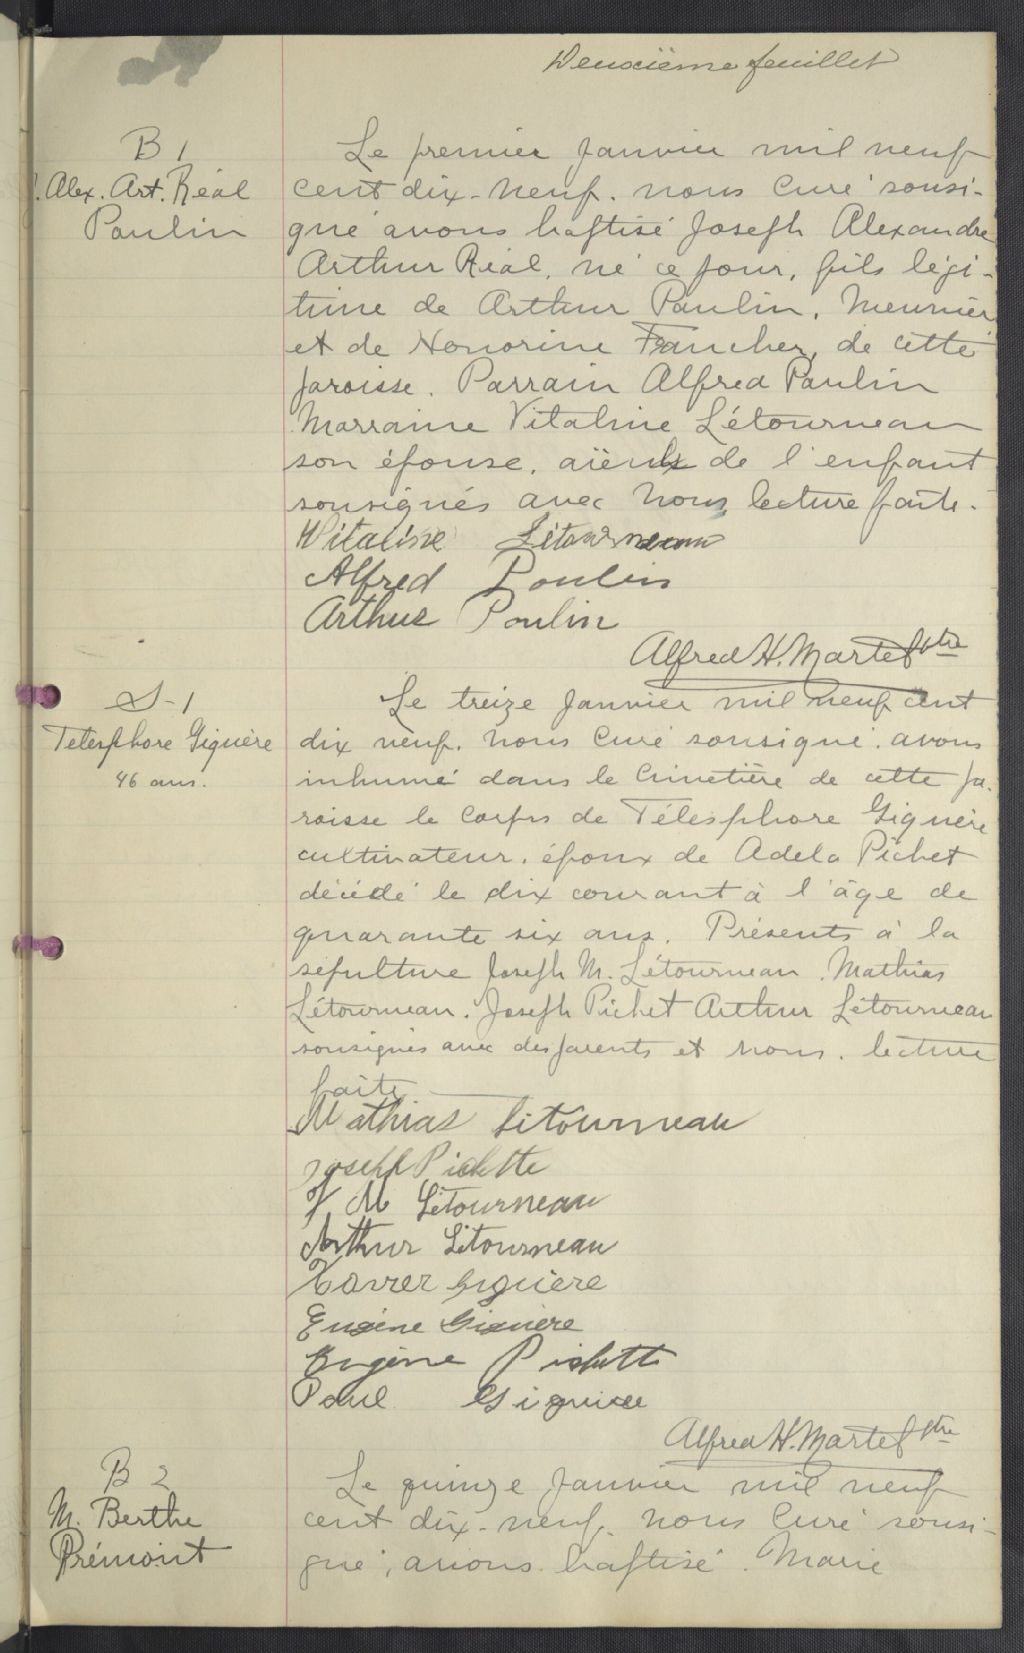 Deuxième feuillet
B 1
J. Alex. Art. Réal
Poulin
Le premier janvier mil neuf
cent dix-neuf. nous Curé sousi-
gné avons baptisé Joseph Alexandre
Arthur Réal, né ce jour, fils légi-
time de Arthur Poulin, Meunier
et de Honorine Faucher, de cette
paroisse. Parrain Alfred Poulin
Marraine Vitaline Létourneau
son épouse. aïeuls de l'enfant
sousignés avec nous, lecture faite.
Vitaline Létourneau
Alfred Poulin
Arthur Poulin
Alfred H. Martel ptre
S-1
Telesphore Giguère
46 ans.
Le treize Janvier mil neuf cent
dix neuf. nous Curé sousigné. avons
inhumé dans le Cimetière de cette pa-
roisse le corps de Télesphore Giguère
cultivateur. époux de Adela Pichet
décédé le dix courant à l'âge de
quarante six ans. Présents à la
sépulture Joseph M. Létourneau. Mathias
Létourneau. Joseph Pichet Arthur Létourneau
sousignés avec des parents et nous. lecture
faite
Mathias Létourneau
Joseph Pichette
J M Létourneau
Arthur Létourneau
Xavier Giguère
Eugène Giguère
Eugène Pichette
Paul Giguère
Alfred H. Martel ptre
B 2
M. Berthe
Prémont
Le quinze Janvier mil neuf
cent dix-neuf. nous Curé sousi-
gné, avons baptisé. Marie